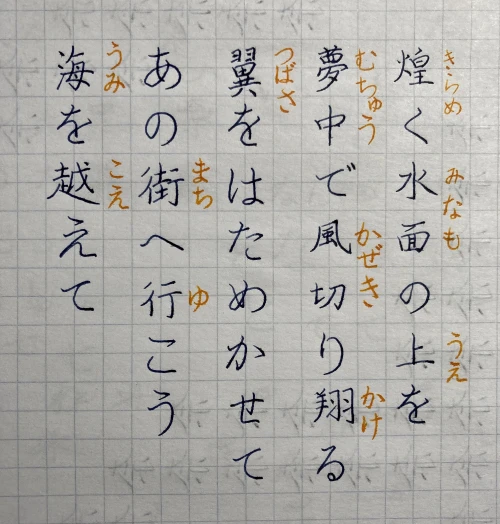 煌く水面の上を
きらめ みなも うえ
夢中で風切り翔る
むちゅう かぜき かけ
翼をはためかせて
つばさ
あの街へ行こう
まち ゆ
海を越えて
うみ こえ